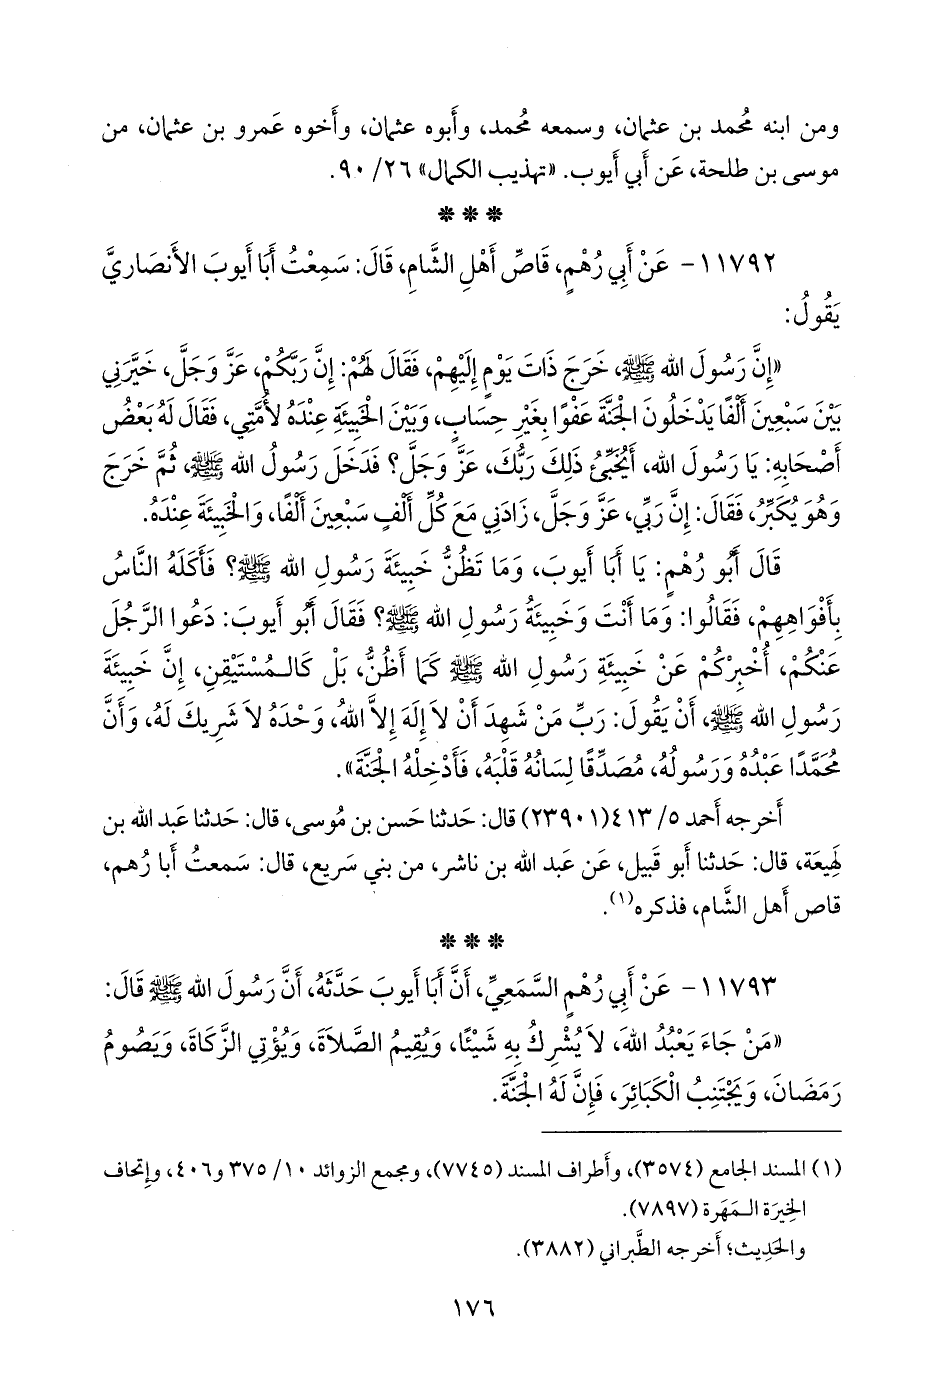 ومن ابنه مُحمد بن عثمان، وسمعه مُحمد، وأَبوه عثمان، وأَخوه عَمرو بن عثمان، من
موسى بن طلحة، عَن أَبي أَيوب. «تهذيب الكمال» ٢٦/ ٩٠.
* * *
١١٧٩٢- عَنْ أَبِي رُهْمٍ، قَاصِّ أَهْلِ الشَّامِ، قَالَ: سَمِعْتُ أَبَا أَيوبَ الأَنصَارِيَّ
يَقُولُ:
«إِنَّ رَسُولَ الله ﷺ، خَرَجَ ذَاتَ يَوْمٍ إِلَيْهِمْ، فَقَالَ لَهُمْ: إِنَّ رَبَّكُمْ، عَزَّ وَجَلَّ، خَيَّرَنِي
بَيْنَ سَبْعِينَ أَلْفًا يَدْخُلُونَ الْجَنَّةَ عَفْوًا بِغَيْرِ حِسَابٍ، وَبَيْنَ الْخَبِيئَةِ عِنْدَهُ لأُمَّتِي، فَقَالَ لَهُ بَعْضُ
أَصْحَابِهِ: يَا رَسُولَ الله، أَيُخَبِّئُ ذَلِكَ رَبُّكَ، عَزَّ وَجَلَّ؟ فَدَخَلَ رَسُولُ الله ﷺ، ثُمَّ خَرَجَ
وَهُوَ يُكَبِّرُ، فَقَالَ: إِنَّ رَبِّي، عَزَّ وَجَلَّ، زَادَنِي مَعَ كُلِّ أَلْفٍ سَبْعِينَ أَلْفًا، وَالْخَبِيئَةَ عِنْدَهُ.
قَالَ أَبُو رُهْمٍ: يَا أَبَا أَيوبَ، وَمَا تَظُنُّ خَبِيئَةَ رَسُولِ الله ﷺ؟ فَأَكَلَهُ النَّاسُ
بِأَفْوَاهِهِمْ، فَقَالُوا: وَمَا أَنْتَ وَخَبِيئَةُ رَسُولِ الله ﷺ؟ فَقَالَ أَبُو أَيوبَ: دَعُوا الرَّجُلَ
عَنْكُمْ، أُخْبِرْكُمْ عَنْ خَبِيئَةِ رَسُولِ الله ﷺ كَمَا أَظُنُّ، بَلْ كَالـمُسْتَيْقِنِ، إِنَّ خَبِيئَةَ
رَسُولِ الله ﷺ، أَنْ يَقُولَ: رَبِّ مَنْ شَهِدَ أَنْ لاَ إِلَهَ إِلاَّ اللهُ، وَحْدَهُ لاَ شَرِيكَ لَهُ، وَأَنَّ
مُحَمَّدًا عَبْدُهُ وَرَسُولُهُ، مُصَدِّقًا لِسَانُهُ قَلْبَهُ، فَأَدْخِلْهُ الْجَنَّةَ».
أَخرجه أَحمد ٥/ ٤١٣(٢٣٩٠١) قال: حَدثنا حَسن بن مُوسى، قال: حَدثنا عَبد الله بن
لَهِيعَة، قال: حَدثنا أَبو قَبيل، عَن عَبد الله بن ناشر، من بني سَريع، قال: سَمعتُ أَبا رُهم،
قاص أَهل الشَّام، فذكره(١).
* * *
١١٧٩٣- عَنْ أَبِي رُهْمٍ السَّمَعِيِّ، أَنَّ أَبَا أَيوبَ حَدَّثَهُ، أَنَّ رَسُولَ الله ﷺ قَالَ:
«مَنْ جَاءَ يَعْبُدُ اللهَ، لاَ يُشْرِكُ بِهِ شَيْئًا، وَيُقِيمُ الصَّلاَةَ، وَيُؤْتِي الزَّكَاةَ، وَيَصُومُ
رَمَضَانَ، وَيَجْتَنِبُ الْكَبَائِرَ، فَإِنَّ لَهُ الْجَنَّةَ.
(١) المسند الجامع (٣٥٧٤)، وأَطراف المسند (٧٧٤٥)، ومجمع الزوائد ١٠/ ٣٧٥ و٤٠٦، وإِتحاف
الخِيرَة الـمَهَرة (٧٨٩٧).
والحَدِيث؛ أَخرجه الطَّبراني (٣٨٨٢).
١٧٦